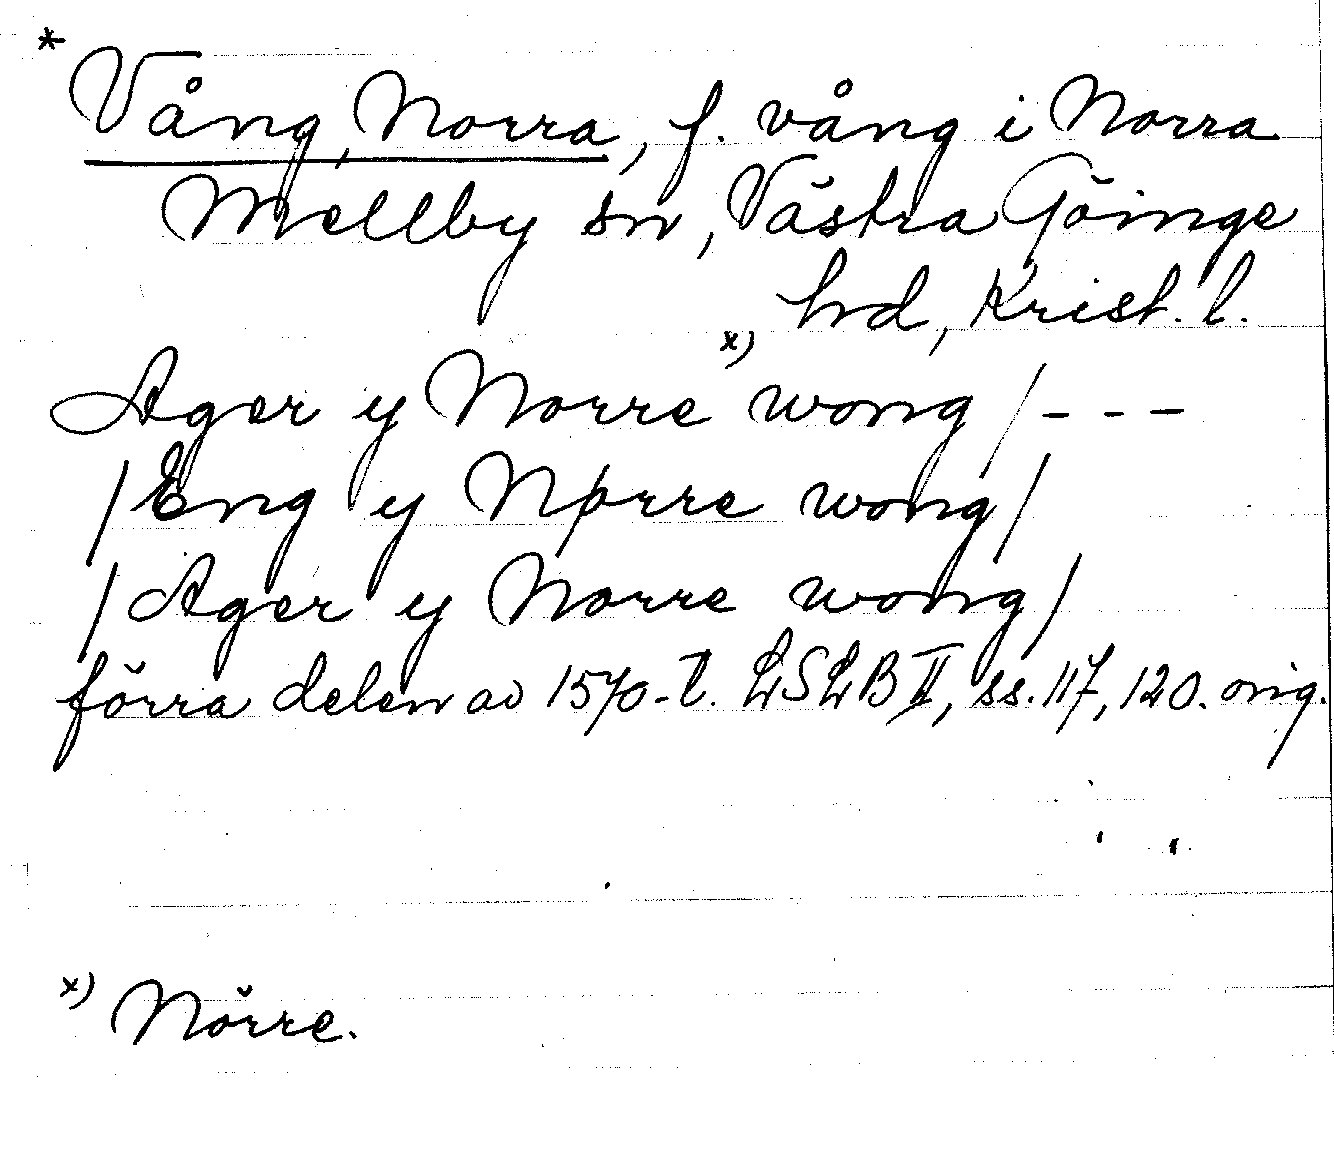 * Vång, Norra, f. vång i Norra
Mellby sn, Västra Göinge
hd, Krist. l.
Ager y Norre x) wong / - - -
/ Eng y Nørre wong /
/ Ager y Norre wong /
förra delen av 1570-t. LSLB II, ss. 117, 120. orig.
x) Nörre.